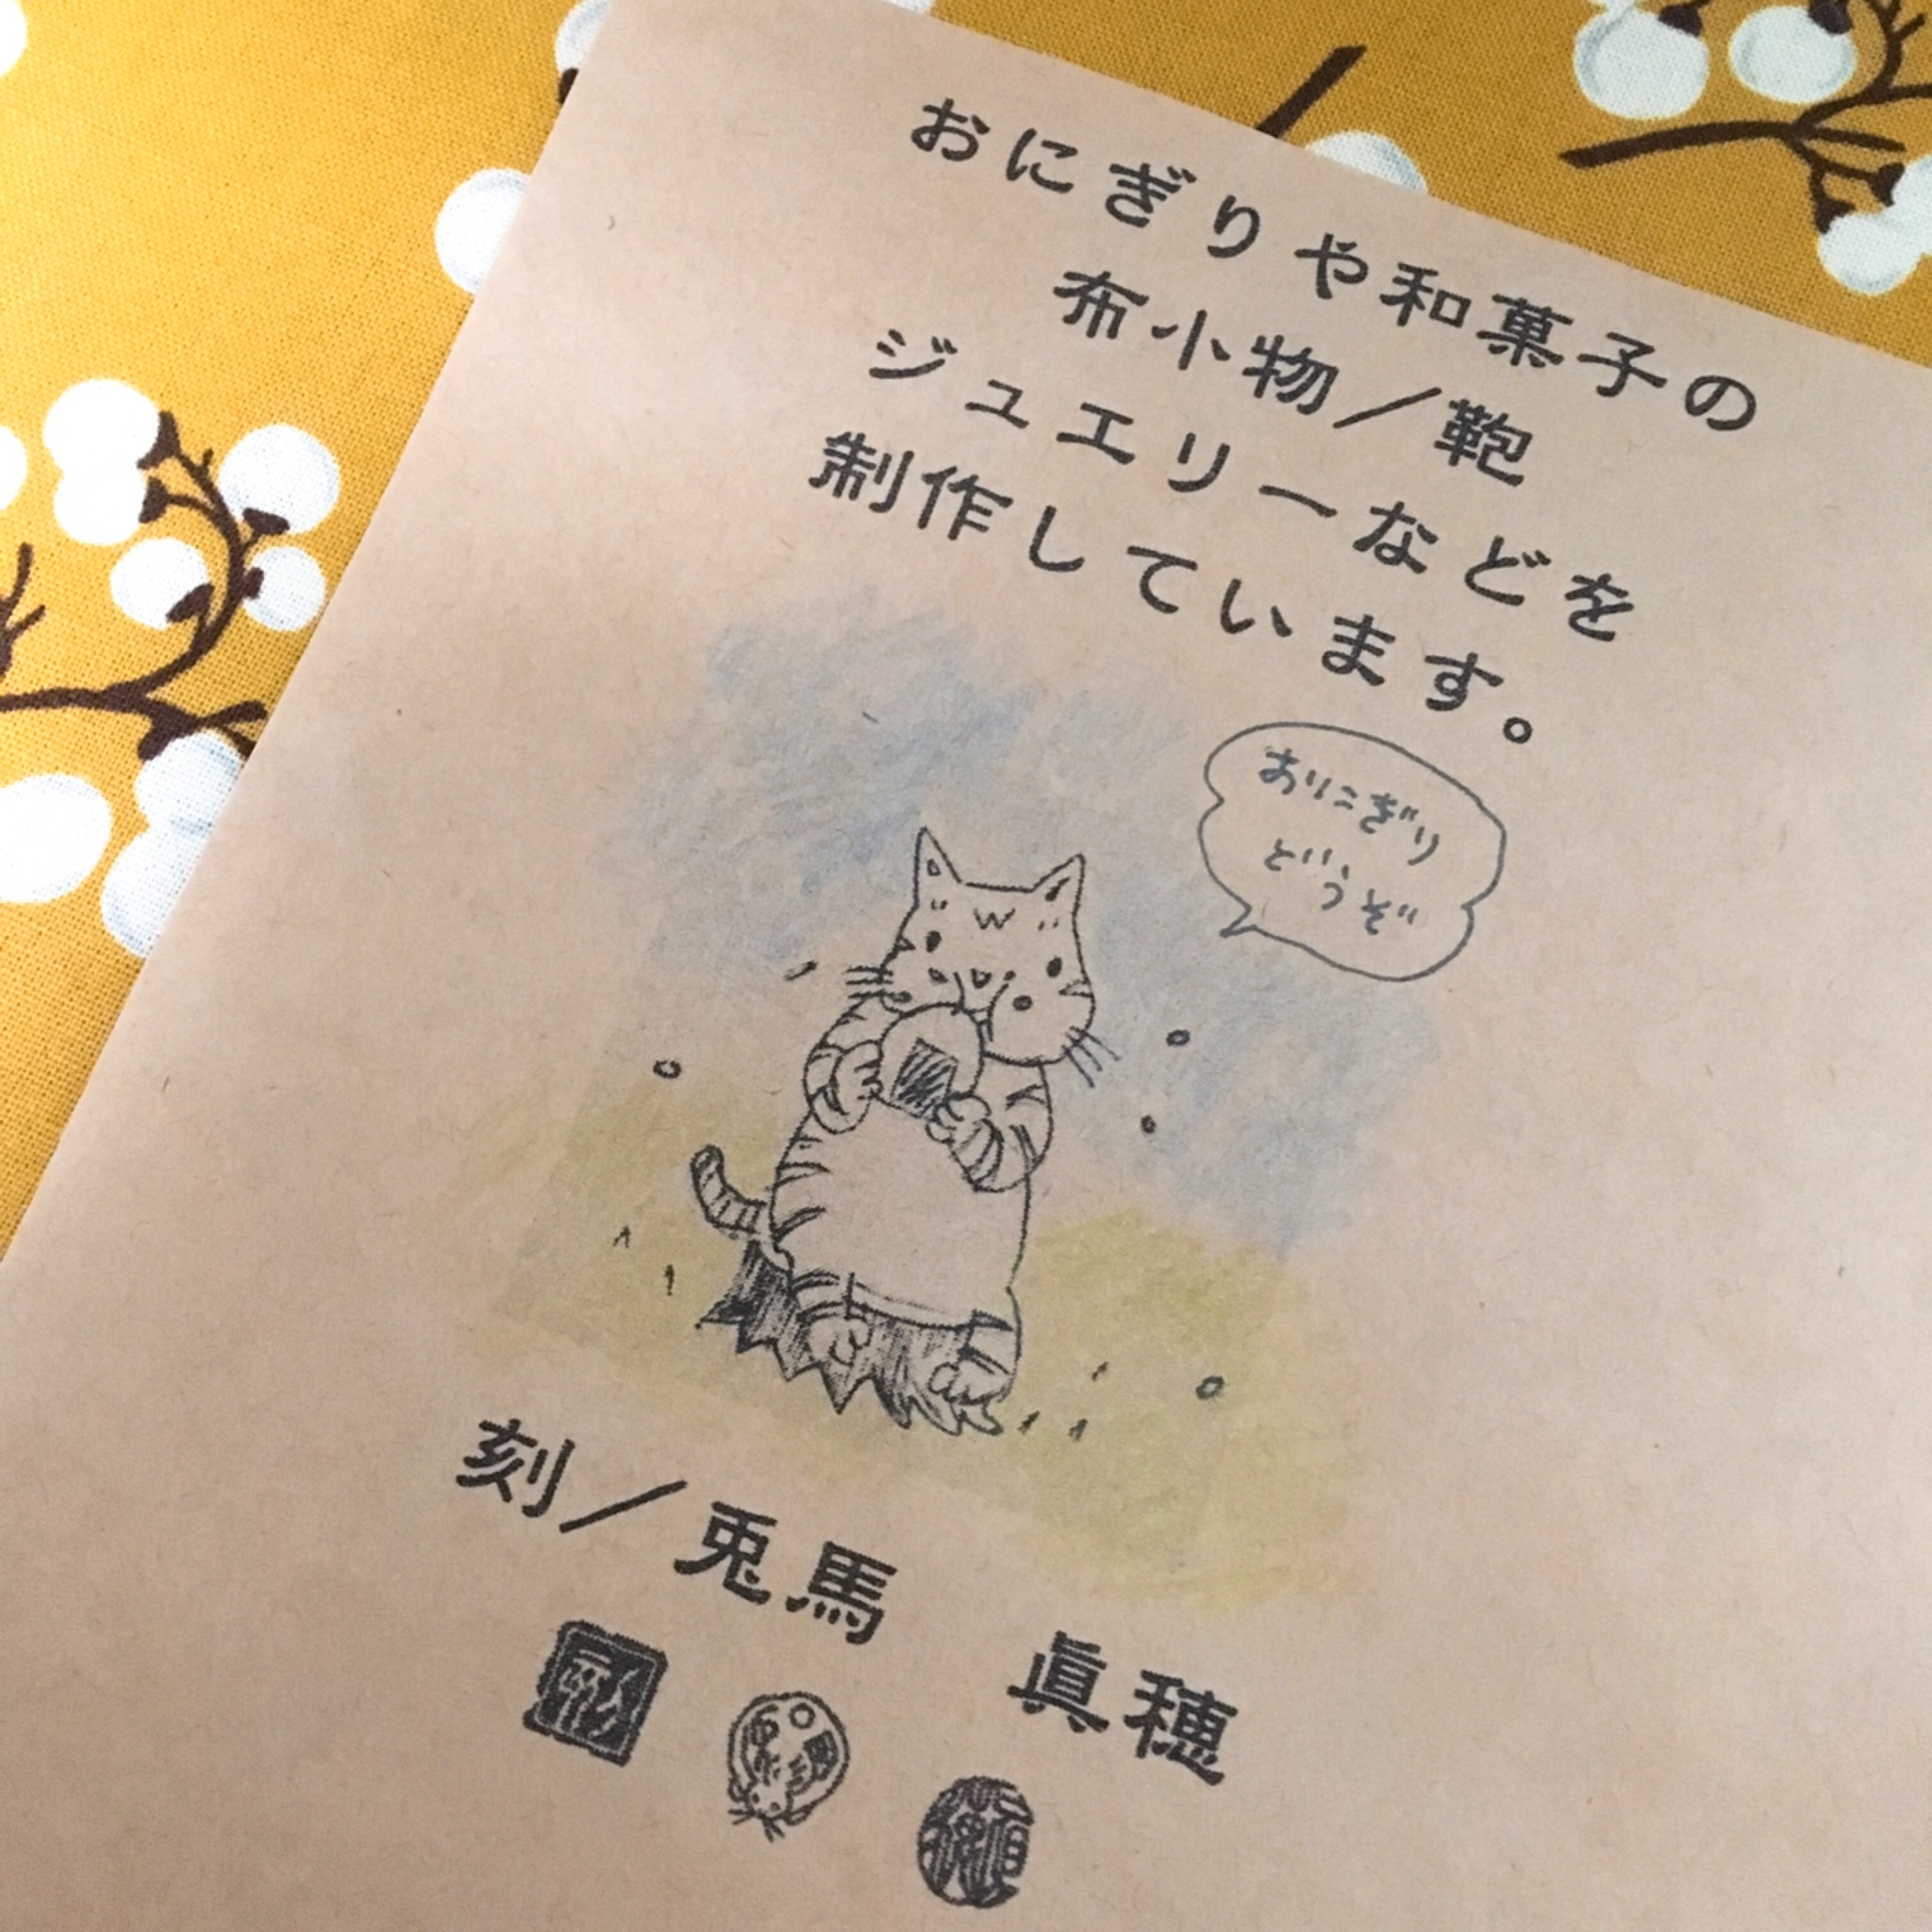 おにぎりや和菓子の
布小物／鞄
ジュエリーなどを
制作しています。
おにぎり
どうぞ
刻／兎馬　眞穂